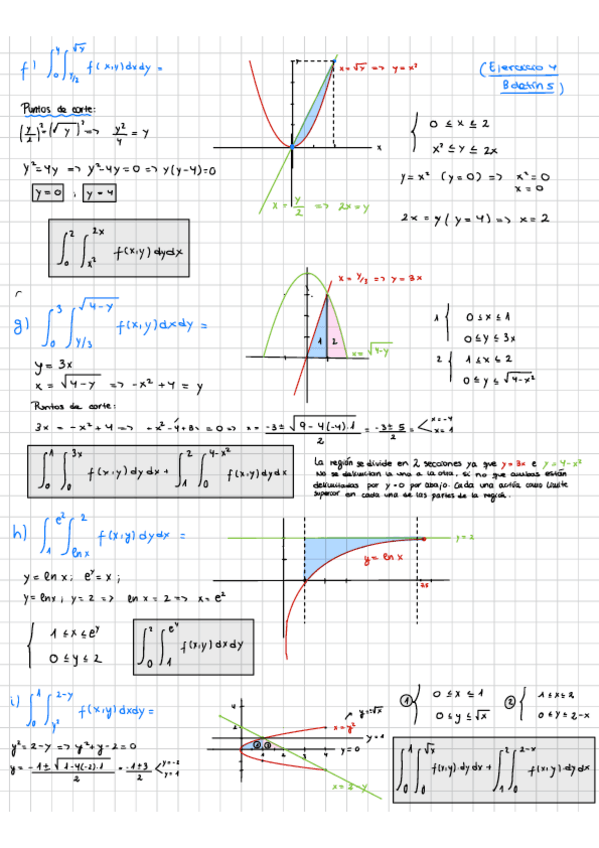 f) ∫₀⁴ ∫_{y/2}^{√y} f(x,y)dxdy =
(Ejercicio 4
Boletín 5)
x=√y => y=x²
Puntos de corte:
(y/2)² = (√y)² => y²/4 = y
0 ≤ x ≤ 2
x² ≤ y ≤ 2x
x
y²=4y => y²-4y=0 => y(y-4)=0
y=x² (y=0) => x²=0
x=0
y=0 , y=4
x = y/2 => 2x=y
2x=y (y=4) => x=2
∫₀² ∫_{x²}^{2x} f(x,y) dydx
x=y/3 => y=3x
g) ∫₀³ ∫_{y/3}^{√4-y} f(x,y)dxdy =
1 2
x=√4-y
1 { 0≤x≤1
0≤y≤3x
2 { 1≤x≤2
0≤y≤√4-x²
y=3x
x = √4-y => -x²+4 = y
Puntos de corte:
3x = -x²+4 => x = -3±√9-4(-4)·1 / 2 = -3±5 / 2 = < x=-4
x=1
∫₀¹ ∫₀^{3x} f(x,y)dydx + ∫₁² ∫₀^{4-x²} f(x,y)dydx
La región se divide en 2 secciones ya que y=3x e y=4-x²
no se delimitan la una a la otra, si no que ambas están
delimitadas por y=0 por abajo. Cada una actúa como límite
superior en cada una de las partes de la región.
h) ∫₁^{e²} ∫_{ln x}^{2} f(x,y) dydx =
y=2
y=ln x
7.5
y=ln x; e^y=x;
y=ln x; y=2 => ln x=2 => x=e²
1≤x≤e^y
0≤y≤2
∫₀² ∫₁^{e^y} f(x,y)dxdy
i) ∫₀¹ ∫_{y²}^{2-y} f(x,y)dxdy =
y=√x
x=y²
y=1
y=0
x=2-y
1 { 0≤x≤1
0≤y≤√x
2 { 1≤x≤2
0≤y≤2-x
y²=2-y => y²+y-2=0
y = -1±√1-4(-2)·1 / 2 = -1±3 / 2 < y=-2
y=1
∫₀¹ ∫₀^{√x} f(x,y)·dydx + ∫₁² ∫₀^{2-x} f(x,y)·dydx